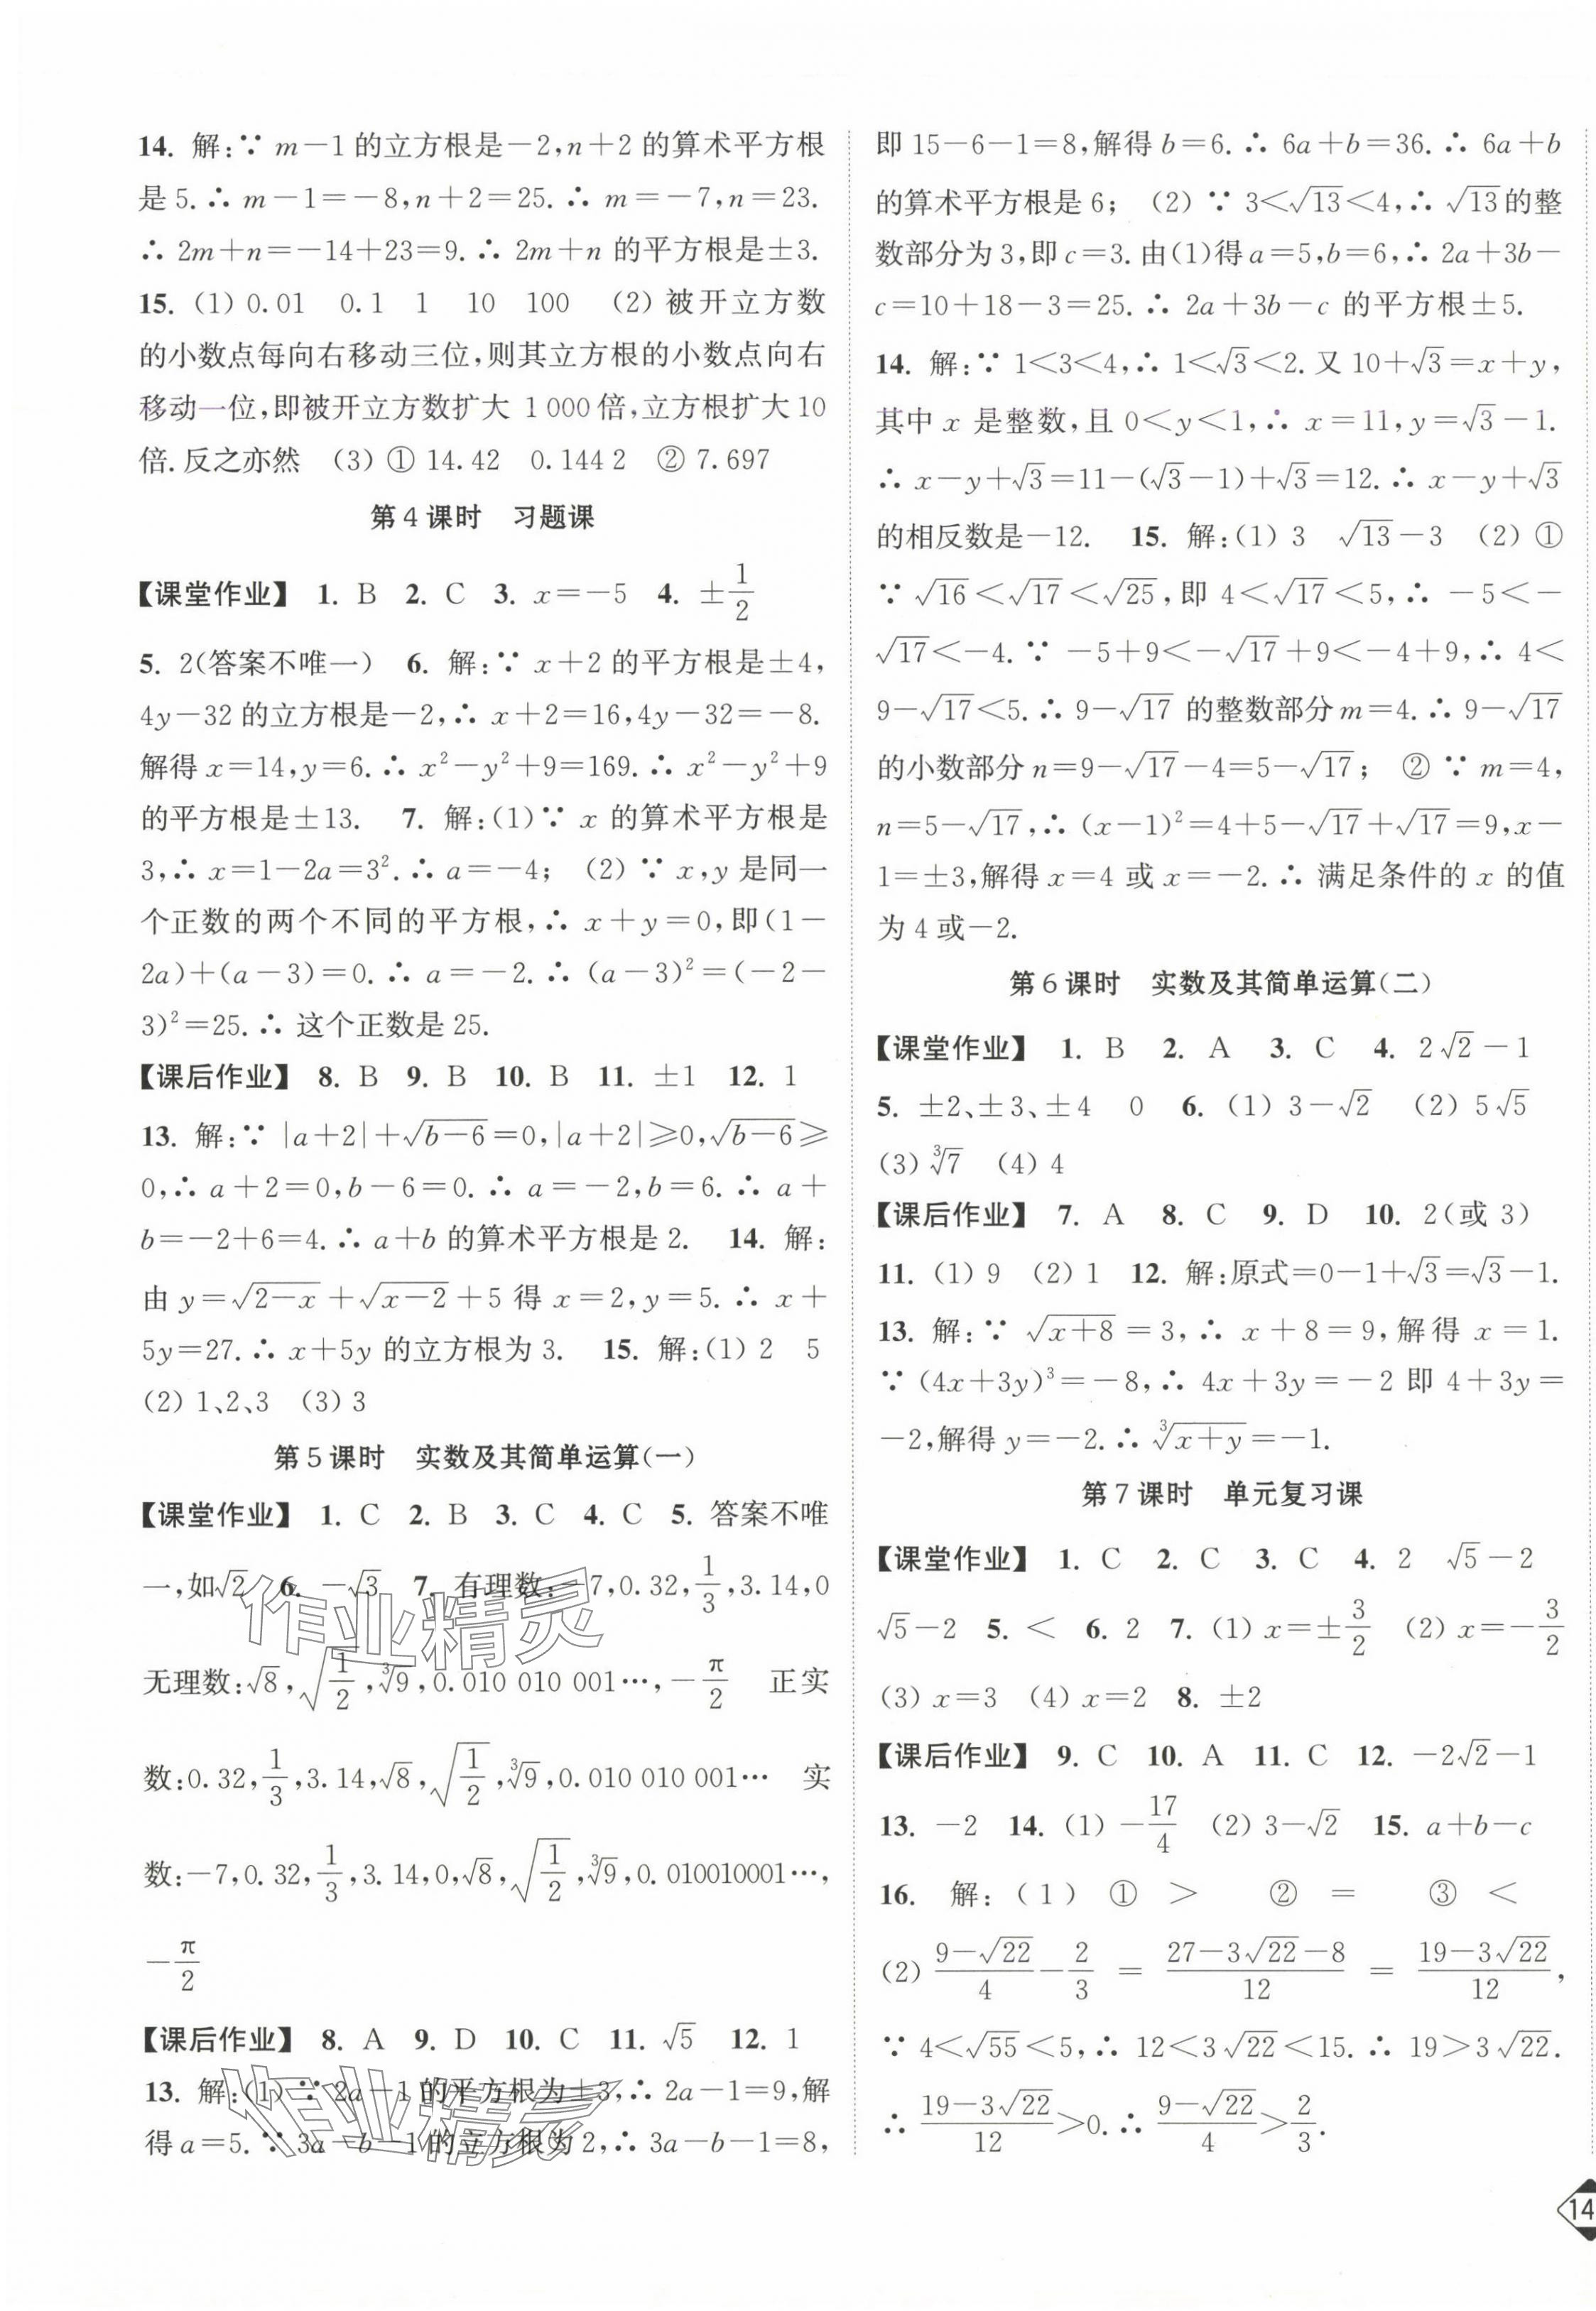 14. 解:∵ m－1的立方根是－2,n＋2的算术平方根
是5.∴ m－1＝－8,n＋2＝25.∴ m＝－7,n＝23.
∴ 2m＋n＝－14＋23＝9.∴ 2m＋n 的平方根是±3.
15. (1) 0.01 0.1 1 10 100 (2) 被开立方数
的小数点每向右移动三位,则其立方根的小数点向右
移动一位,即被开立方数扩大 1 000倍,立方根扩大10
倍.反之亦然 (3) ① 14.42 0.144 2 ② 7.697
第4课时 习题课
【课堂作业】 1. B 2. C 3. x＝－5 4. ±1/2
5. 2(答案不唯一) 6. 解:∵ x＋2的平方根是±4,
4y－32的立方根是－2,∴ x＋2＝16,4y－32＝－8.
解得x＝14,y＝6.∴ x²－y²＋9＝169.∴ x²－y²＋9
的平方根是±13. 7. 解:(1)∵ x 的算术平方根是
3,∴ x＝1－2a＝3².∴ a＝－4; (2) ∵ x,y是同一
个正数的两个不同的平方根,∴ x＋y＝0,即(1－
2a)＋(a－3)＝0.∴ a＝－2.∴ (a－3)²＝(－2－
3)²＝25.∴ 这个正数是25.
【课后作业】 8. B 9. B 10. B 11. ±1 12. 1
13. 解:∵ |a＋2|＋√(b－6)＝0,|a＋2|≥0,√(b－6)≥
0,∴ a＋2＝0,b－6＝0.∴ a＝－2,b＝6.∴ a＋
b＝－2＋6＝4.∴ a＋b 的算术平方根是2. 14. 解:
由 y＝√(2－x)＋√(x－2)＋5 得 x＝2,y＝5.∴ x＋
5y＝27.∴ x＋5y 的立方根为3. 15. 解:(1) 2 5
(2) 1、2、3 (3) 3
第5课时 实数及其简单运算(一)
【课堂作业】 1. C 2. B 3. C 4. C 5. 答案不唯
一,如√2 6. －√3 7. 有理数:－7,0.32,1/3,3.14,0
无理数:√8,√(1/2),∛9,0.010 010 001…,－π/2 正实
数:0.32,1/3,3.14,√8,√(1/2),∛9,0.010 010 001… 实
数:－7,0.32,1/3,3.14,0,√8,√(1/2),∛9,0.010010001…,
－π/2
【课后作业】 8. A 9. D 10. C 11. √5 12. 1
13. 解:(1) ∵ 2a－1的平方根为±3,∴ 2a－1＝9,解
得a＝5.∵ 3a－b－1的立方根为2,∴ 3a－b－1＝8,
即15－6－1＝8,解得b＝6.∴ 6a＋b＝36.∴ 6a＋b
的算术平方根是6; (2) ∵ 3＜√13＜4,∴ √13的整
数部分为3,即c＝3.由(1)得a＝5,b＝6,∴ 2a＋3b－
c＝10＋18－3＝25.∴ 2a＋3b－c 的平方根±5.
14. 解:∵ 1＜3＜4,∴ 1＜√3＜2.又10＋√3＝x＋y,
其中x 是整数,且0＜y＜1,∴ x＝11,y＝√3－1.
∴ x－y＋√3＝11－(√3－1)＋√3＝12.∴ x－y＋√3
的相反数是－12. 15. 解:(1) 3 √13－3 (2) ①
∵ √16＜√17＜√25,即 4＜√17＜5,∴ －5＜－
√17＜－4.∵ －5＋9＜－√17＋9＜－4＋9,∴ 4＜
9－√17＜5.∴ 9－√17 的整数部分m＝4.∴ 9－√17
的小数部分n＝9－√17－4＝5－√17; ② ∵ m＝4,
n＝5－√17,∴ (x－1)²＝4＋5－√17＋√17＝9,x－
1＝±3,解得x＝4 或x＝－2.∴ 满足条件的x 的值
为4或－2.
第6课时 实数及其简单运算(二)
【课堂作业】 1. B 2. A 3. C 4. 2√2－1
5. ±2、±3、±4 0 6. (1) 3－√2 (2) 5√5
(3) ∛7 (4) 4
【课后作业】 7. A 8. C 9. D 10. 2(或 3)
11. (1) 9 (2) 1 12. 解:原式＝0－1＋√3＝√3－1.
13. 解:∵ √(x＋8)＝3,∴ x＋8＝9,解得 x＝1.
∵ (4x＋3y)³＝－8,∴ 4x＋3y＝－2 即 4＋3y＝
－2,解得y＝－2.∴ ∛(x＋y)＝－1.
第7课时 单元复习课
【课堂作业】 1. C 2. C 3. C 4. 2 √5－2
√5－2 5. ＜ 6. 2 7. (1) x＝±3/2 (2) x＝－3/2
(3) x＝3 (4) x＝2 8. ±2
【课后作业】 9. C 10. A 11. C 12. －2√2－1
13. －2 14. (1) －17/4 (2) 3－√2 15. a＋b－c
16. 解:(1) ① ＞ ② ＝ ③ ＜
(2) (9－√22)/4－2/3 ＝ (27－3√22－8)/12 ＝ (19－3√22)/12,
∵ 4＜√55＜5,∴ 12＜3√22＜15.∴ 19＞3√22.
∴ (19－3√22)/12＞0.∴ (9－√22)/4＞2/3.
作业精灵
作业精灵
14